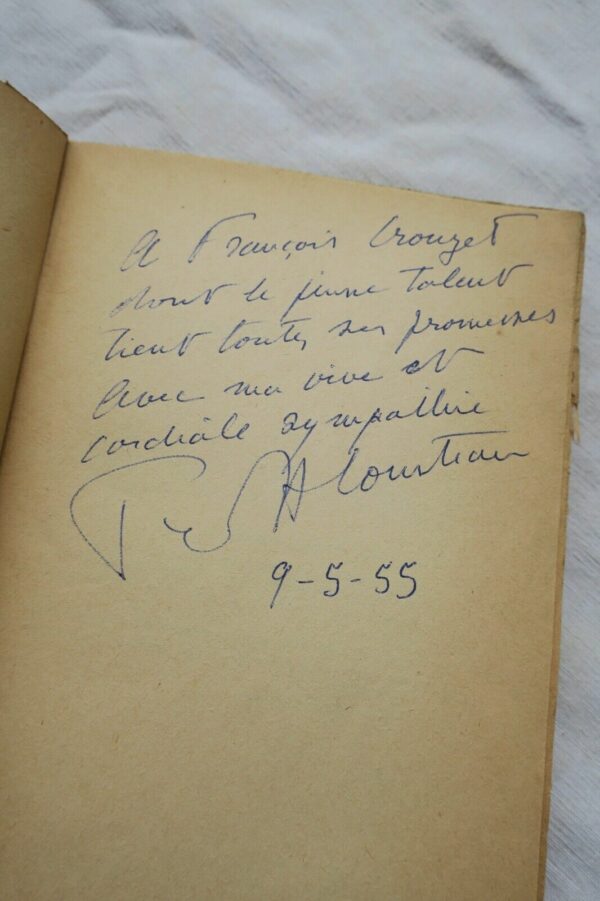 A François Crouzet
dont le jeune talent
tient toutes ses promesses
Avec ma vive et
cordiale sympathie
9-5-55